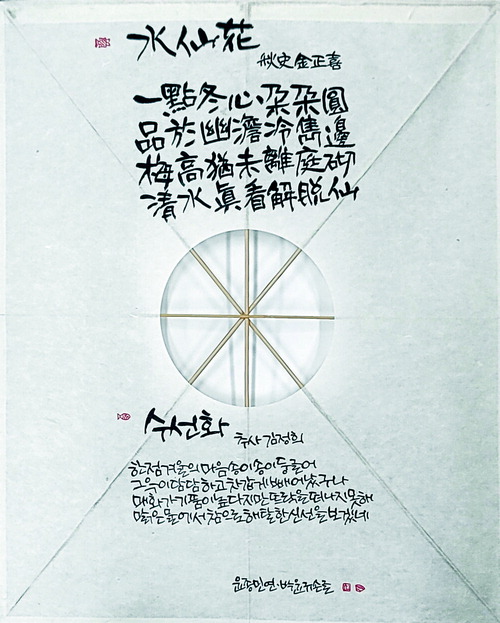 水仙花
秌史 金正喜
一點冬心朶朶圓
品於幽澹冷雋邊
梅高猶未離庭砌
清水眞看解脫仙
수선화
추사 김정희
한 점 겨울의 마음 송이송이 둥글어
그윽이 담담하고 차갑게 빼어났구나
매화가 기품이 높다지만 뜨락을 떠나지 못해
맑은 물에서 참으로 해탈한 신선을 보겠네
민연·박윤규손글